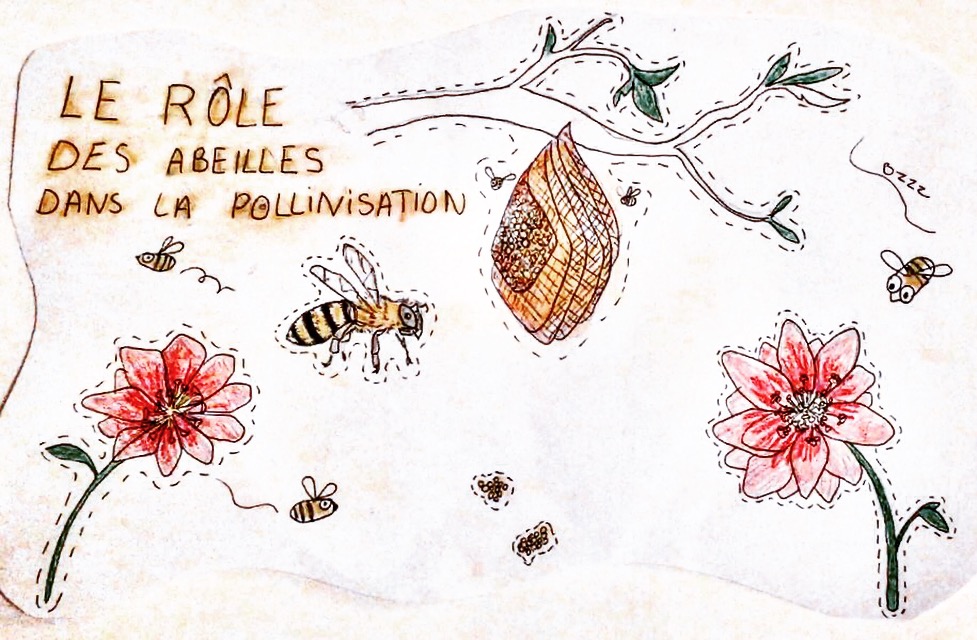 LE RÔLE
DES ABEILLES
DANS LA POLLINISATION
BZZZ